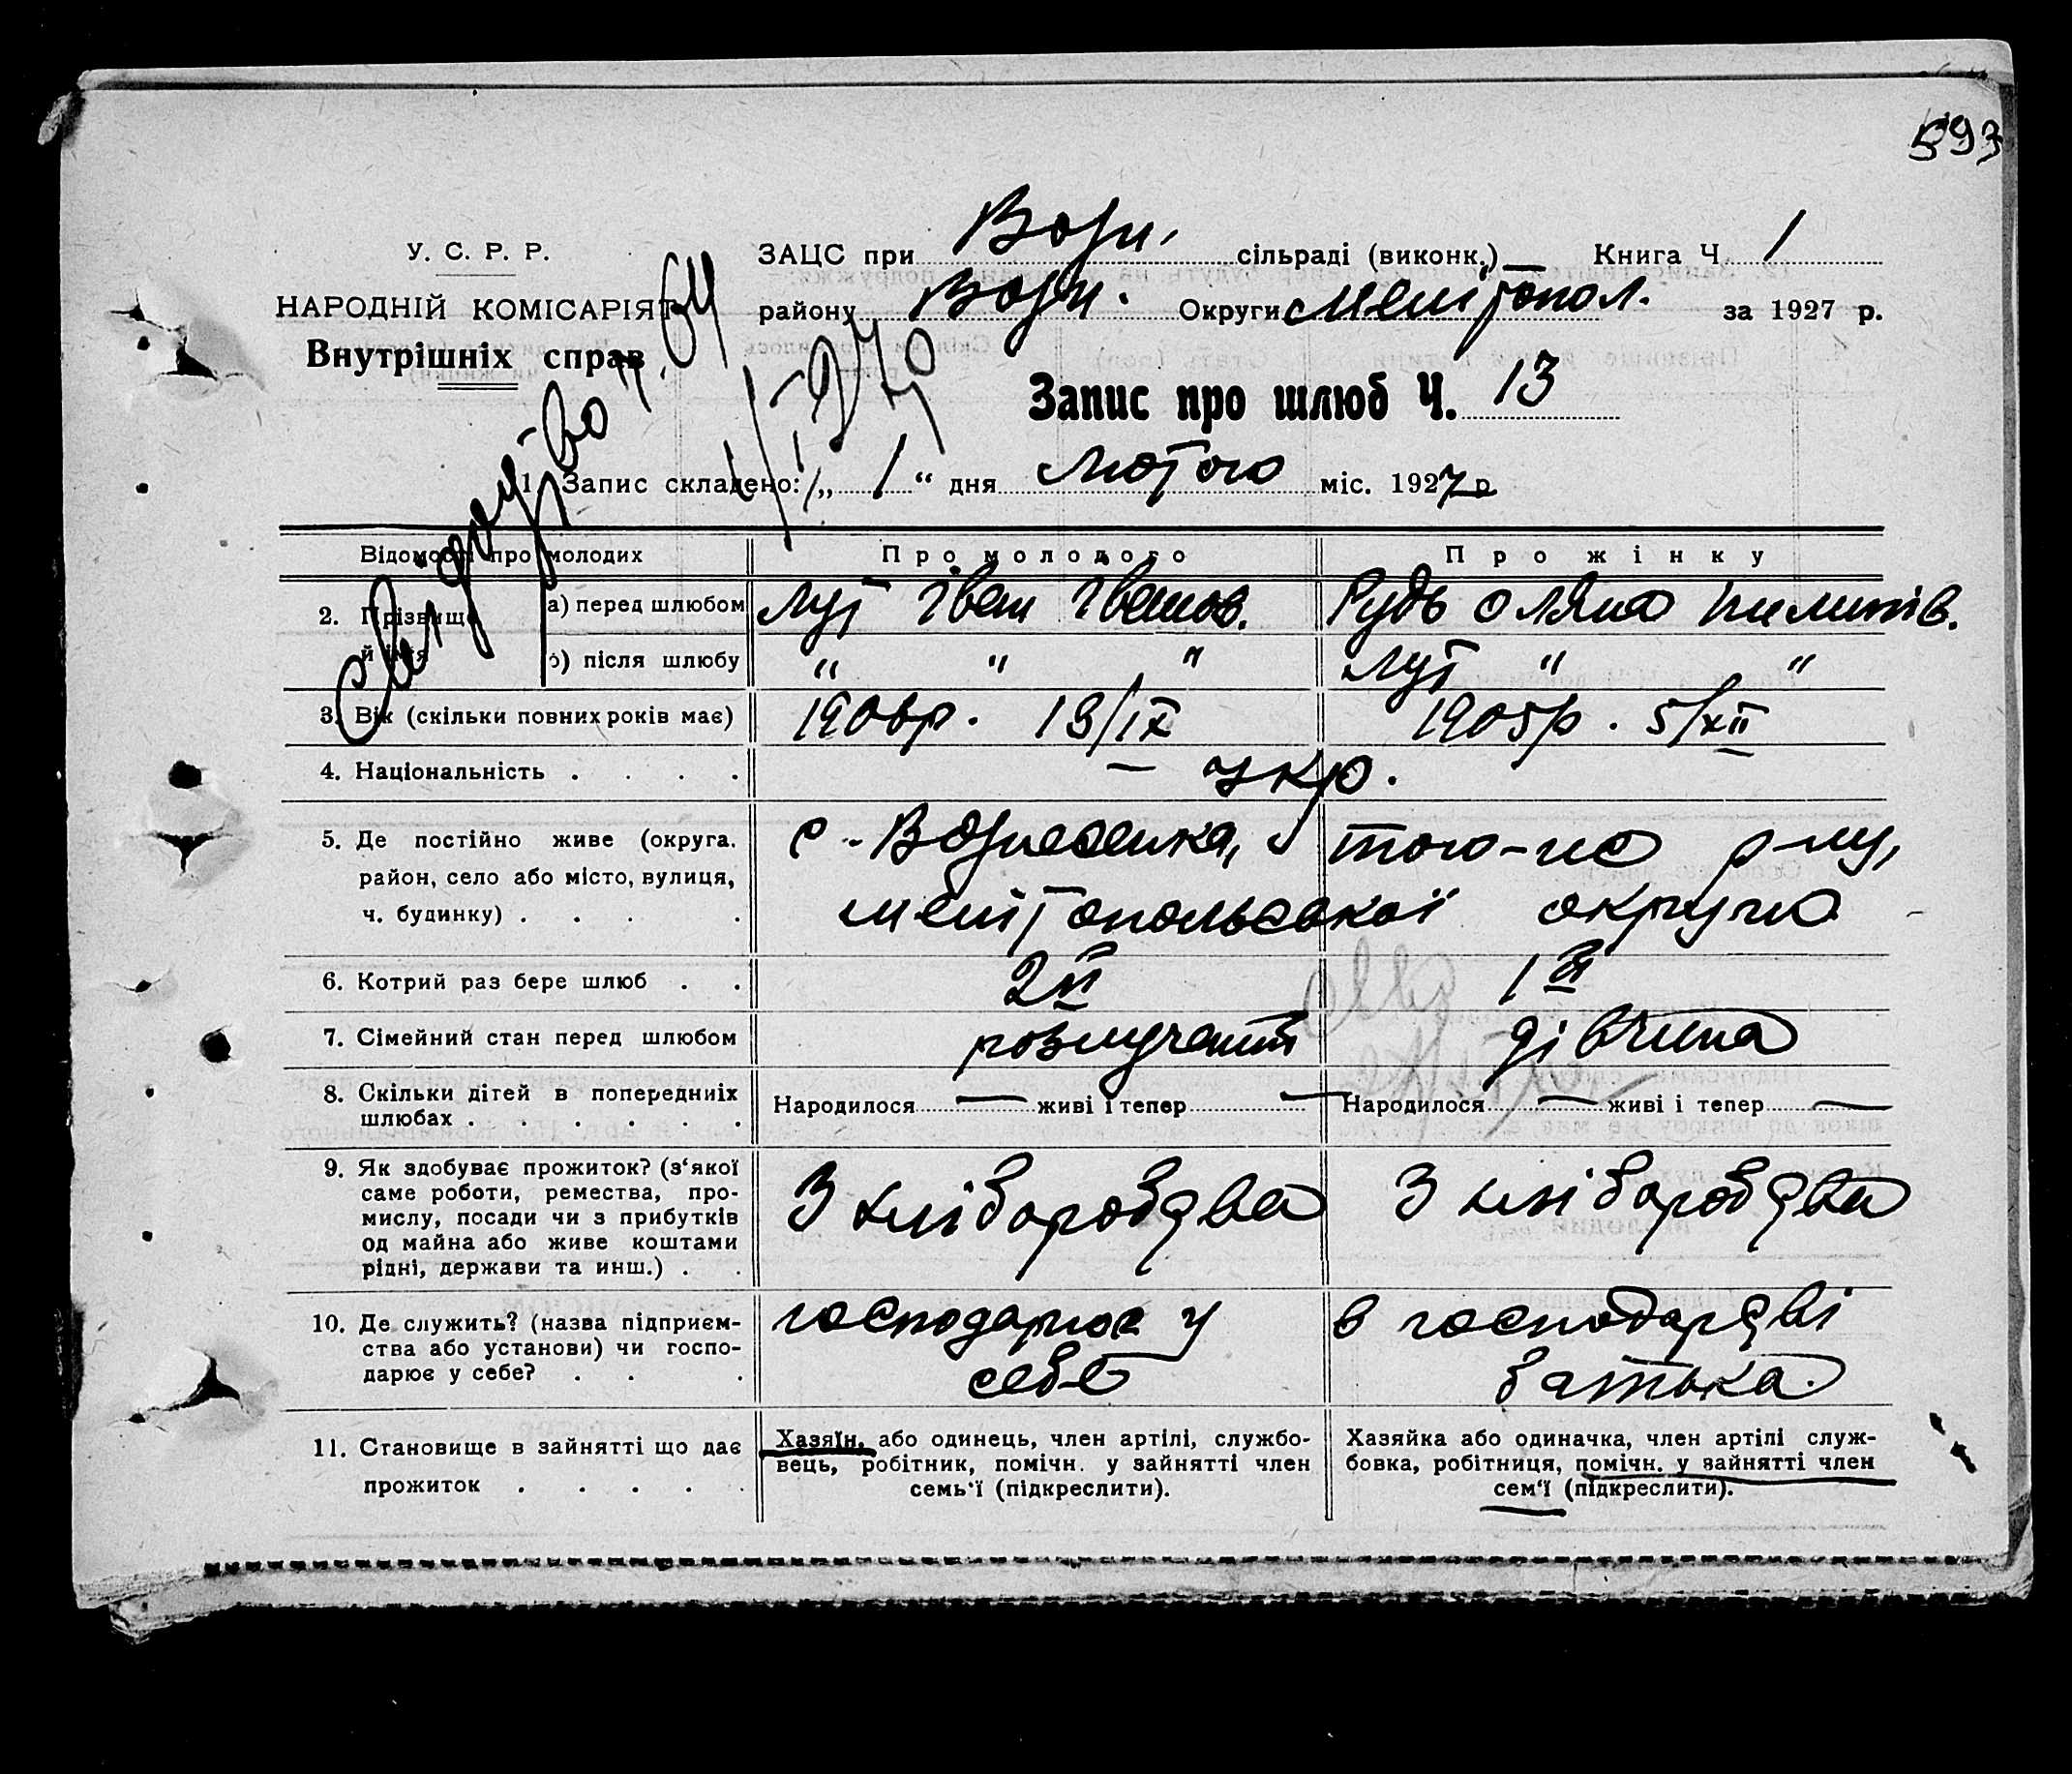 593
У. С. Р. Р.
НАРОДНІЙ КОМІСАРІЯТ
Внутрішніх справ
ЗАЦС при Возн. сільраді (виконк.) — Книга Ч. 1
району Возн. Округи Мелітопол. за 1927 р.
Запис про шлюб Ч. 13
Свидоцтво Ч. 64
1/II-27р
1. Запис складено: „ 1 “ дня Лютого міс. 1927 р
Відомості про молодих Про молодого Про жінку
2. Прізвище й ім'я а) перед шлюбом Лут Іван Іванов. Рудь Оляна Пилипів.
б) після шлюбу " " " Лут " "
3. Вік (скільки повних років має) 1906р. 13/IX 1905р. 5/XII
4. Національність . . . . — укр.
5. Де постійно живе (округа, с. Вознесенка, того-ж р-ну,
район, село або місто, вулиця, Мелітопольської округи
ч. будинку) . . . .
6. Котрий раз бере шлюб . . 2й 1й
7. Сімейний стан перед шлюбом розлучений дівчина
8. Скільки дітей в попередніх Народилося — живі і тепер — Народилося — живі і тепер —
шлюбах . . . . . .
9. Як здобуває прожиток? (з'якої З хліборобства З хліборобства
саме роботи, ремества, про-
мислу, посади чи з прибутків
од майна або живе коштами
рідні, держави та инш.) . .
10. Де служить? (назва підприєм- господарює у в господарстві
ства або установи) чи госпо- себе батька.
дарює у себе? . . .
11. Становище в зайнятті що дає Хазяїн, або одинець, член артілі, службо- Хазяйка або одиначка, член артілі служ-
прожиток . . . . . вець, робітник, помічн. у зайнятті член бовка, робітниця, помічн. у зайнятті член
семь'ї (підкреслити). сем'ї (підкреслити).